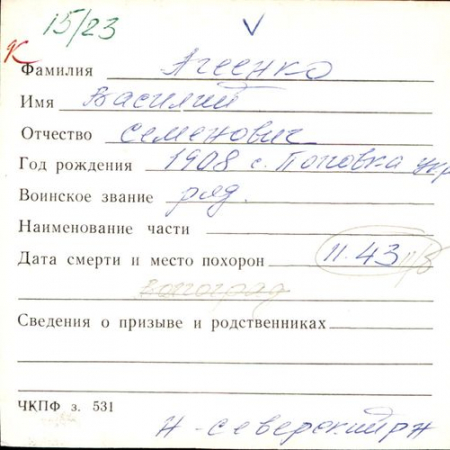 15/23
К
Фамилия Агеенко
Имя Василий
Отчество Семенович
Год рождения 1908 с. Поповка укр
Воинское звание ряд.
Наименование части
Дата смерти и место похорон 11.43 п/в
Сведения о призыве и родственниках
ЧКПФ з. 531
Н-Северский рн